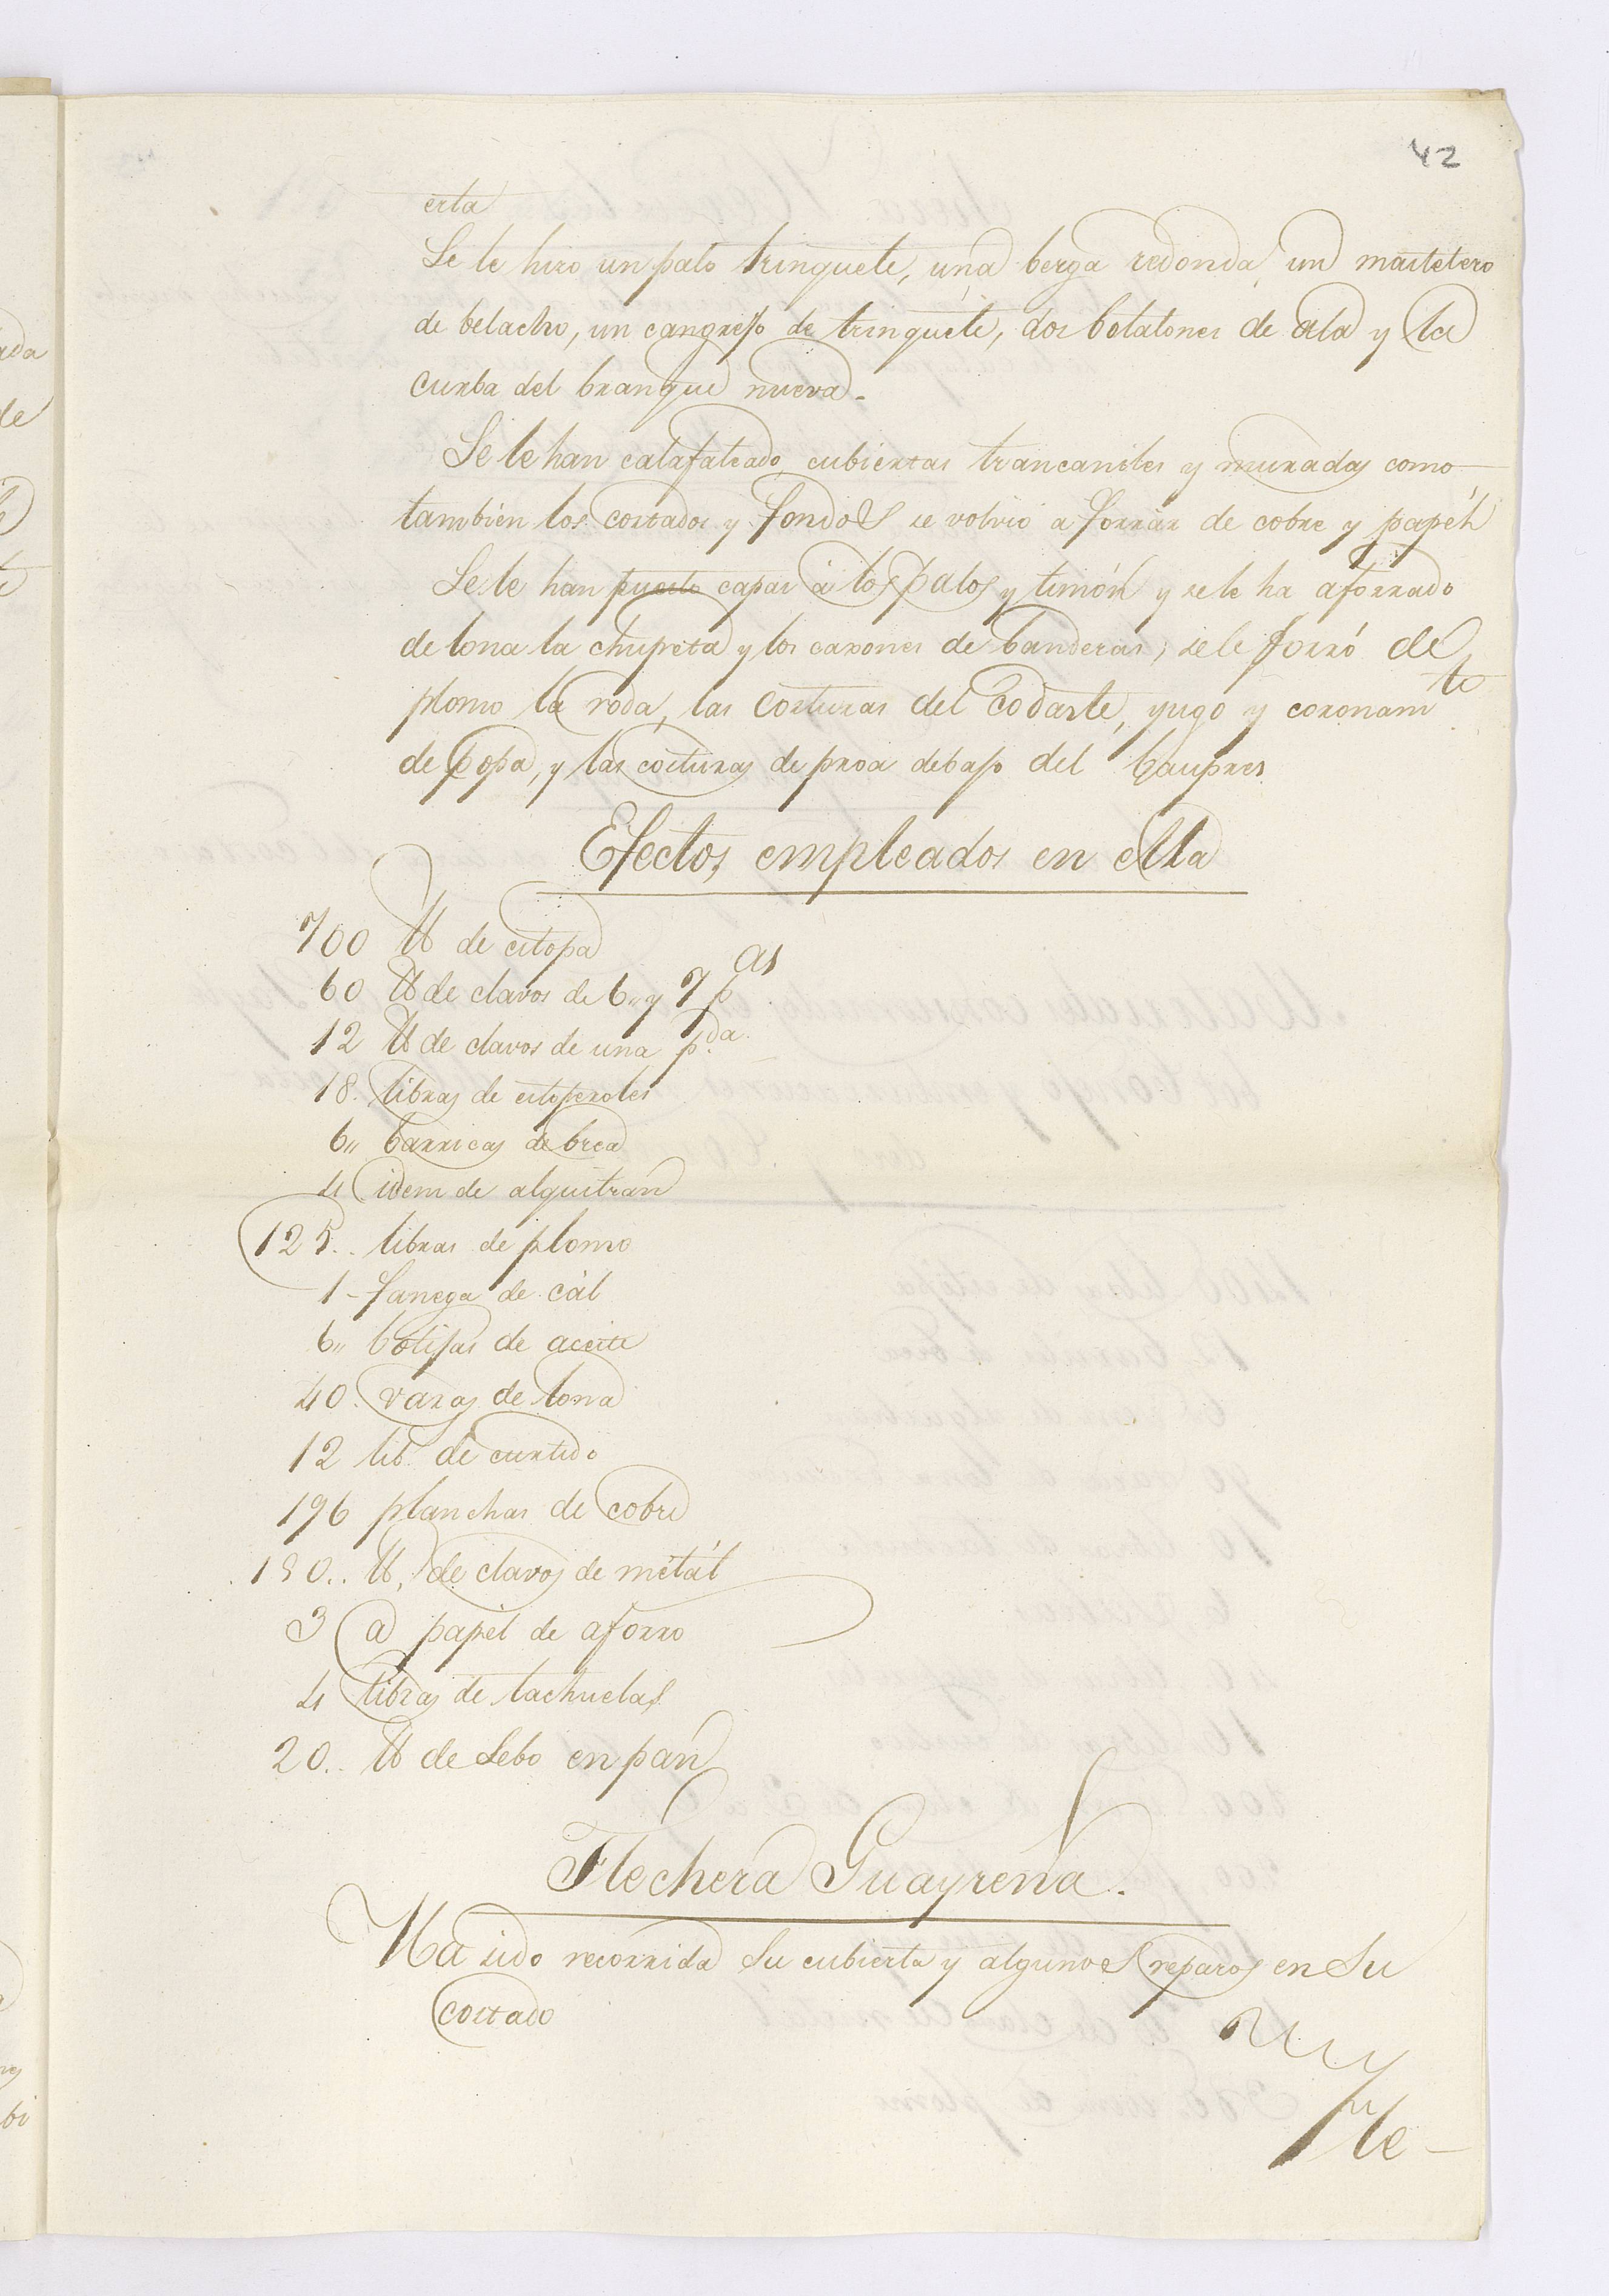 42
erta
Se le hizo un palo trinquete, una berga redonda, un mastelero
de belacho, un cangrejo de trinquete, dos botalones de ala y la
curba del branque nueva.
Se le han calafateado cubiertas trancaniles y muradas como
tambien los costados y fondos se volvió a forrar de cobre y papél
Se le han puesto capas á los palos y timón y se le ha aforrado
de lona la chupeta y los caxones de banderas, se le forró de
plomo la roda, las costuras del Codaste, yugo y coronamto
de popa, y las costuras de proa debajo del baupres
Efectos empleados en ella
700 lb de estopa
60 lb de clavos de 6,, y 7 pas
12 lb de clavos de una p.da
18. libras de estoperoles
6,, barricas de brea
4 idem de alquitrán
125.. libras de plomo
1 - fanega de cál
6,, botijas de aceite
40. varas de lona
12 lib. de curtido
196 planchas de cobre
180.. lb, de clavos de metál
3 @ papel de aforro
4 libras de tachuelas
20.. lb de Sebo en pán
Flechera Guayreña.
Ha sido recorrida su cubierta y algunos reparos en su
costado
Fle-